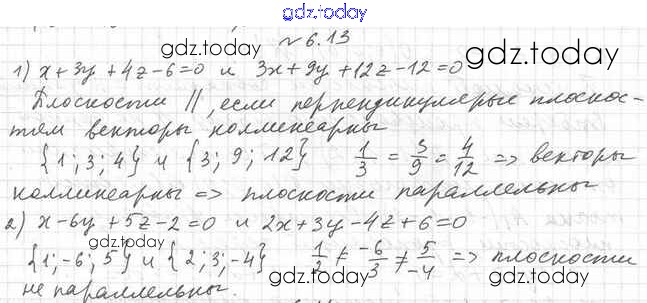 gdz.today
№ 6.13
gdz.today gdz.today
1) x+3y+4z-6=0 и 3x+9y+12z-12=0
Плоскости ||, если перпендикулярные плоскос-
тям векторы коллинеарны
{1; 3; 4} и {3; 9; 12} 1/3 = 3/9 = 4/12 => векторы
коллинеарны => плоскости параллельны
gdz.today gdz.today
2) x-6y+5z-2=0 и 2x+3y-4z+6=0
gdz.today gdz.today
{1; -6; 5} и {2; 3; -4} 1/2 ≠ -6/3 ≠ 5/-4 => плоскости
не параллельны.
gdz.today gdz.today